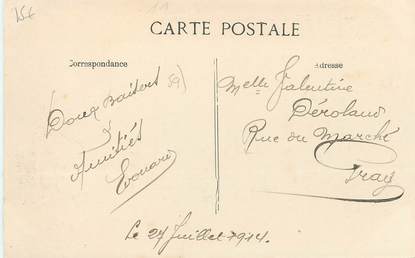 15€
CARTE POSTALE
Correspondance
Adresse
Doux baisers
Amitiés
Edouard
Melle Valentine
Déroland
Rue du Marché
Gray
Le 24 Juillet 1914.